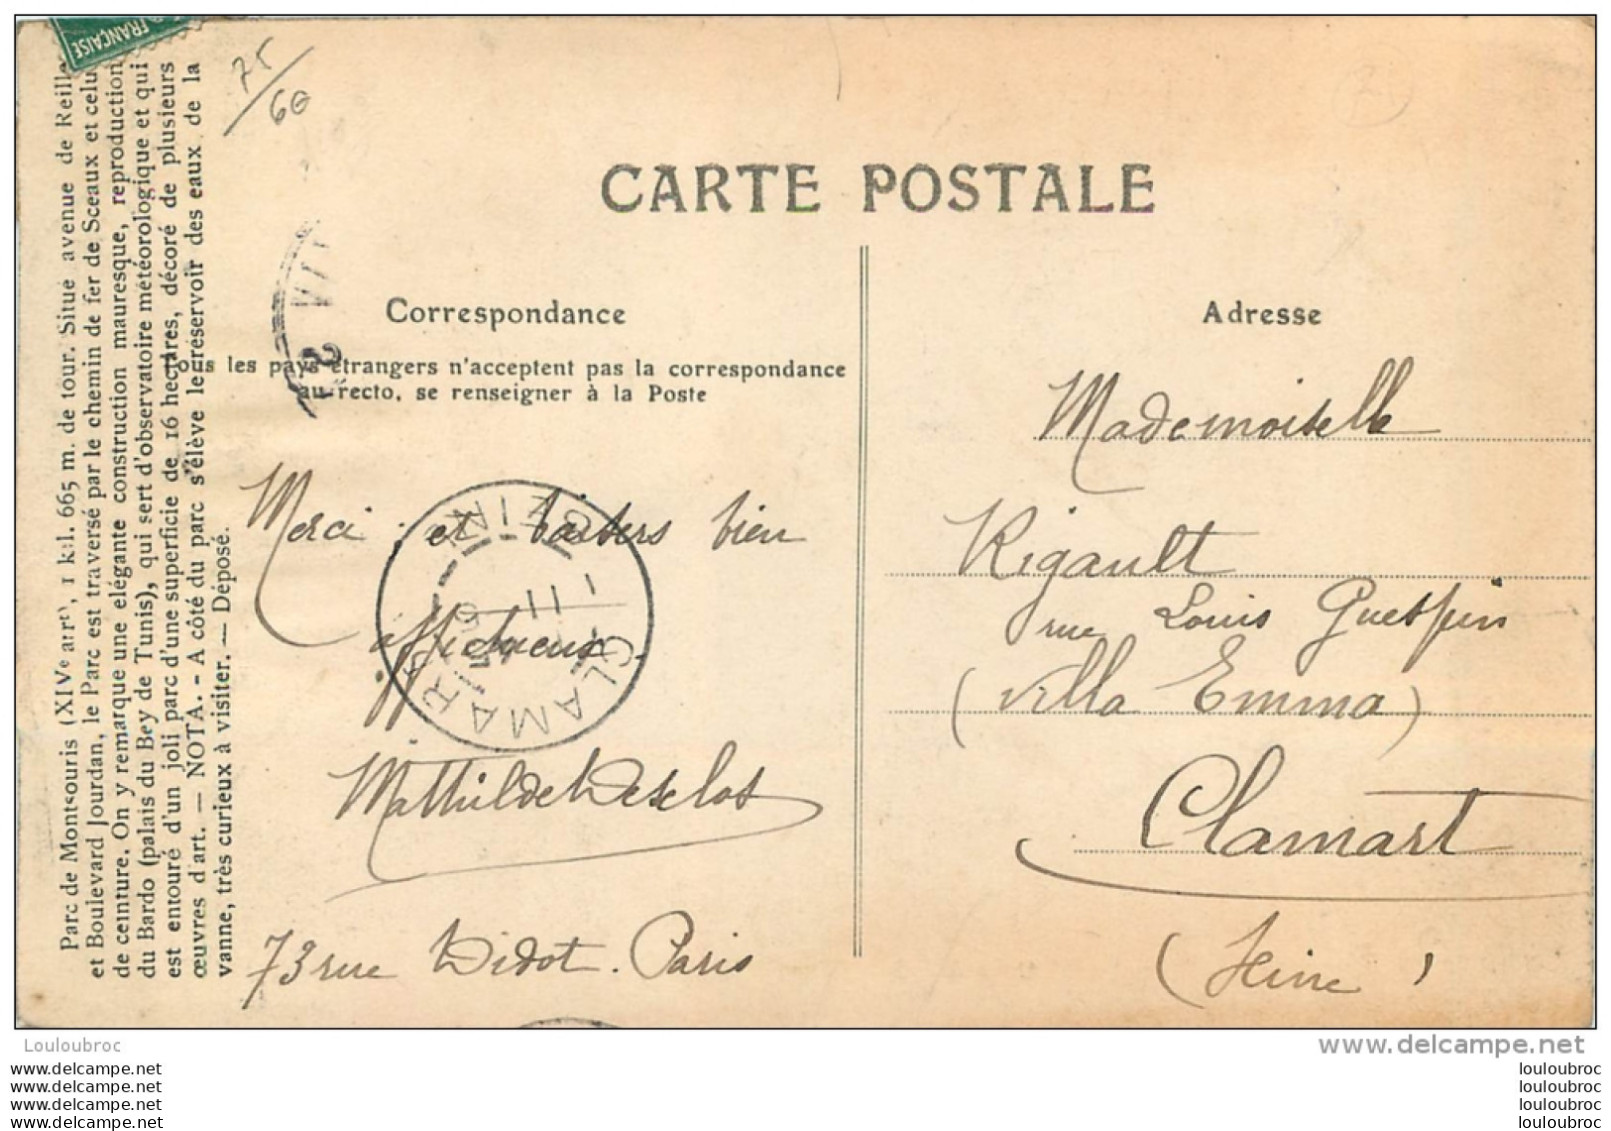 FRANÇAISE
75/60
Parc de Montsouris (XIVe arrt), 1 kil. 665 m. de tour. Situé avenue de Reille
et Boulevard Jourdan, le Parc est traversé par le chemin de fer de Sceaux et celui
de ceinture. On y remarque une élégante construction mauresque, reproduction
du Bardo (palais du Bey de Tunis), qui sert d'observatoire météorologique et qui
est entouré d'un joli parc d'une superficie de 16 hectares, décoré de plusieurs
œuvres d'art. — NOTA. - A côté du parc s'élève le reservoir des eaux de la
vanne, très curieux à visiter. — Déposé.
CARTE POSTALE
Correspondance
Tous les pays étrangers n'acceptent pas la correspondance
au recto, se renseigner à la Poste
Merci et baisers bien
affectueux.
Mathilde Deselos
73 rue Didot. Paris
CLAMART
SEINE
Adresse
Mademoiselle
Rigault
rue Louis Guespin
(Villa Emma)
Clamart
(Seine)
Louloubroc
www.delcampe.net
www.delcampe.net
www.delcampe.net
www.delcampe.net
www.delcampe.net
louloubroc
louloubroc
louloubroc
louloubroc